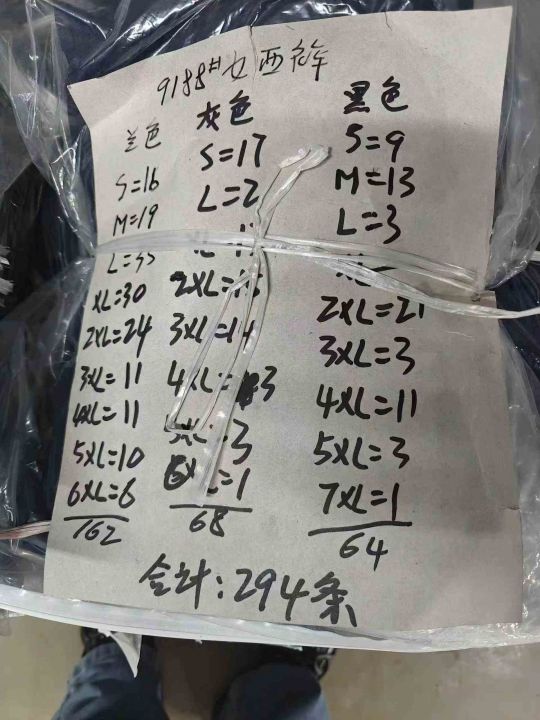 9188#女西裤
兰色
S=16
M=19
L=35
XL=30
2XL=24
3XL=11
4XL=11
5XL=10
6XL=6
162
灰色
S=17
L=2
3XL=14
4XL=3
5XL=3
6XL=1
68
黑色
S=9
M=13
L=3
2XL=21
3XL=3
4XL=11
5XL=3
7XL=1
64
合计:294条